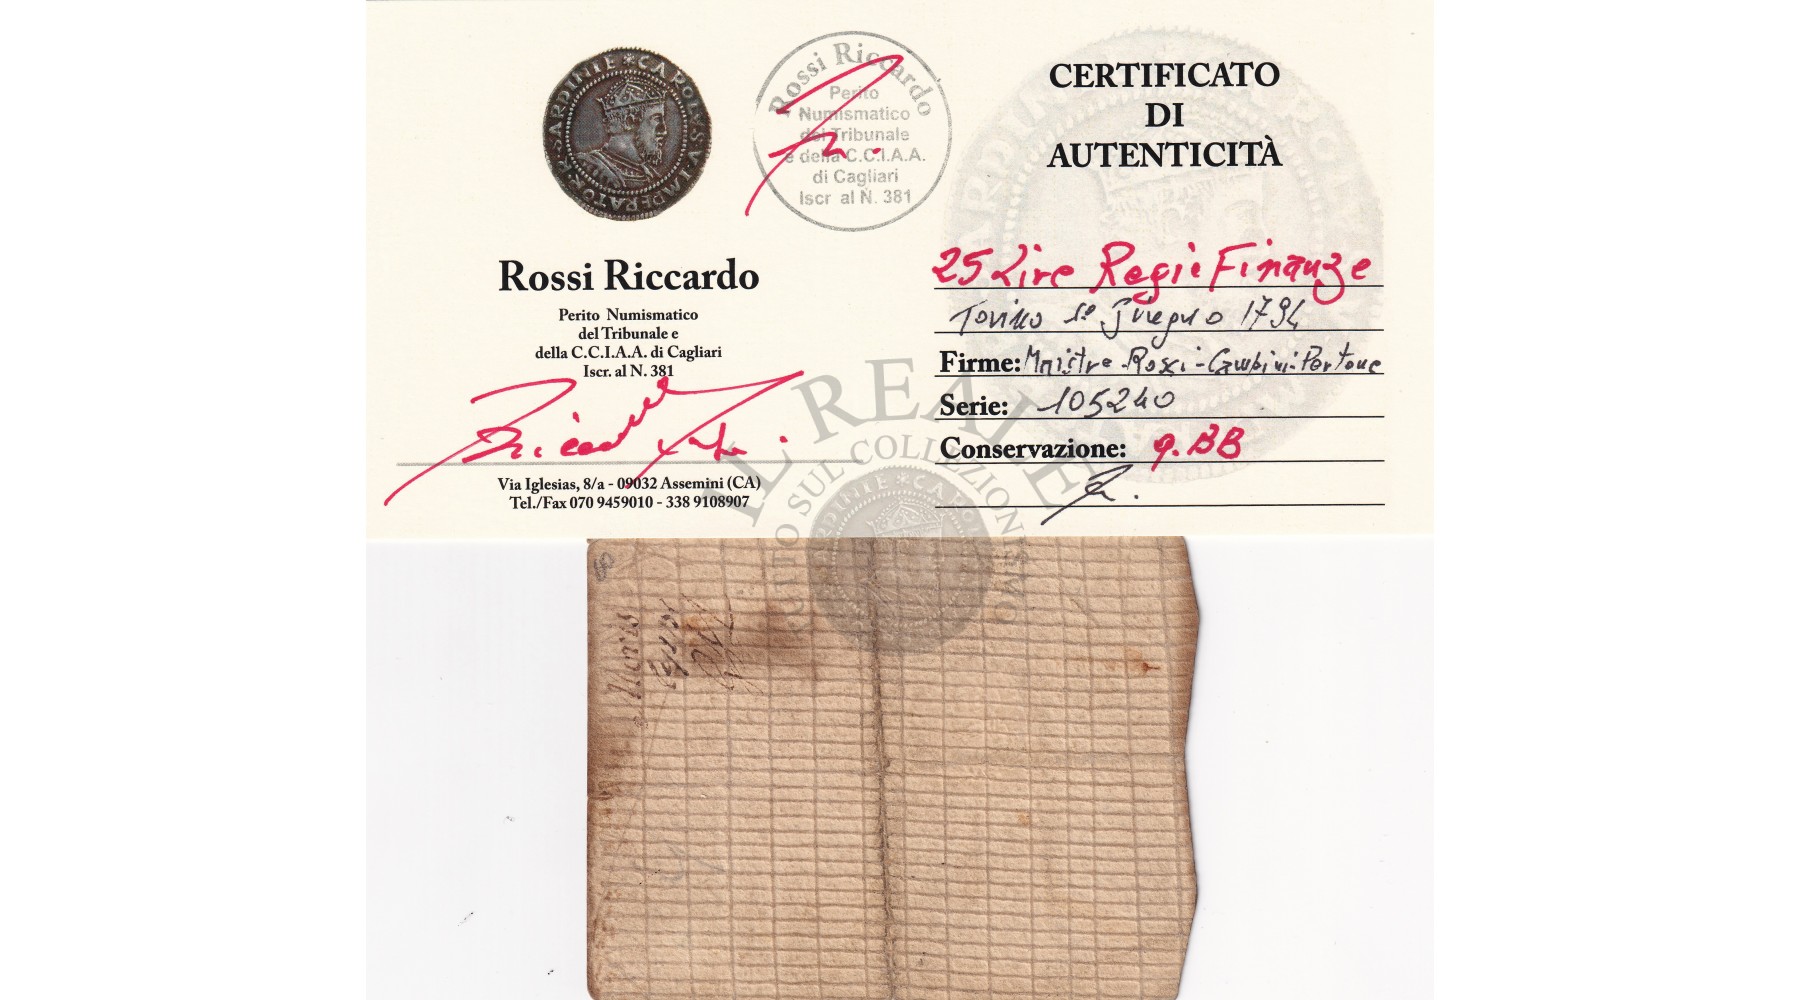 SARDINIE * CAROLVS V IMPERATOR
Rossi Riccardo
Perito
Numismatico
del Tribunale
e della C.C.I.A.A.
di Cagliari
Iscr al N. 381
CERTIFICATO
DI
AUTENTICITÀ
Rossi Riccardo
Perito Numismatico
del Tribunale e
della C.C.I.A.A. di Cagliari
Iscr. al N. 381
Via Iglesias, 8/a - 09032 Assemini (CA)
Tel./Fax 070 9459010 - 338 9108907
25 Lire Regie Finanze
Torino 1º Giugno 1794
Firme: Rossi -
Serie: 105240
Conservazione: q.BB
IL REALE
SUL COLLEZIONISMO